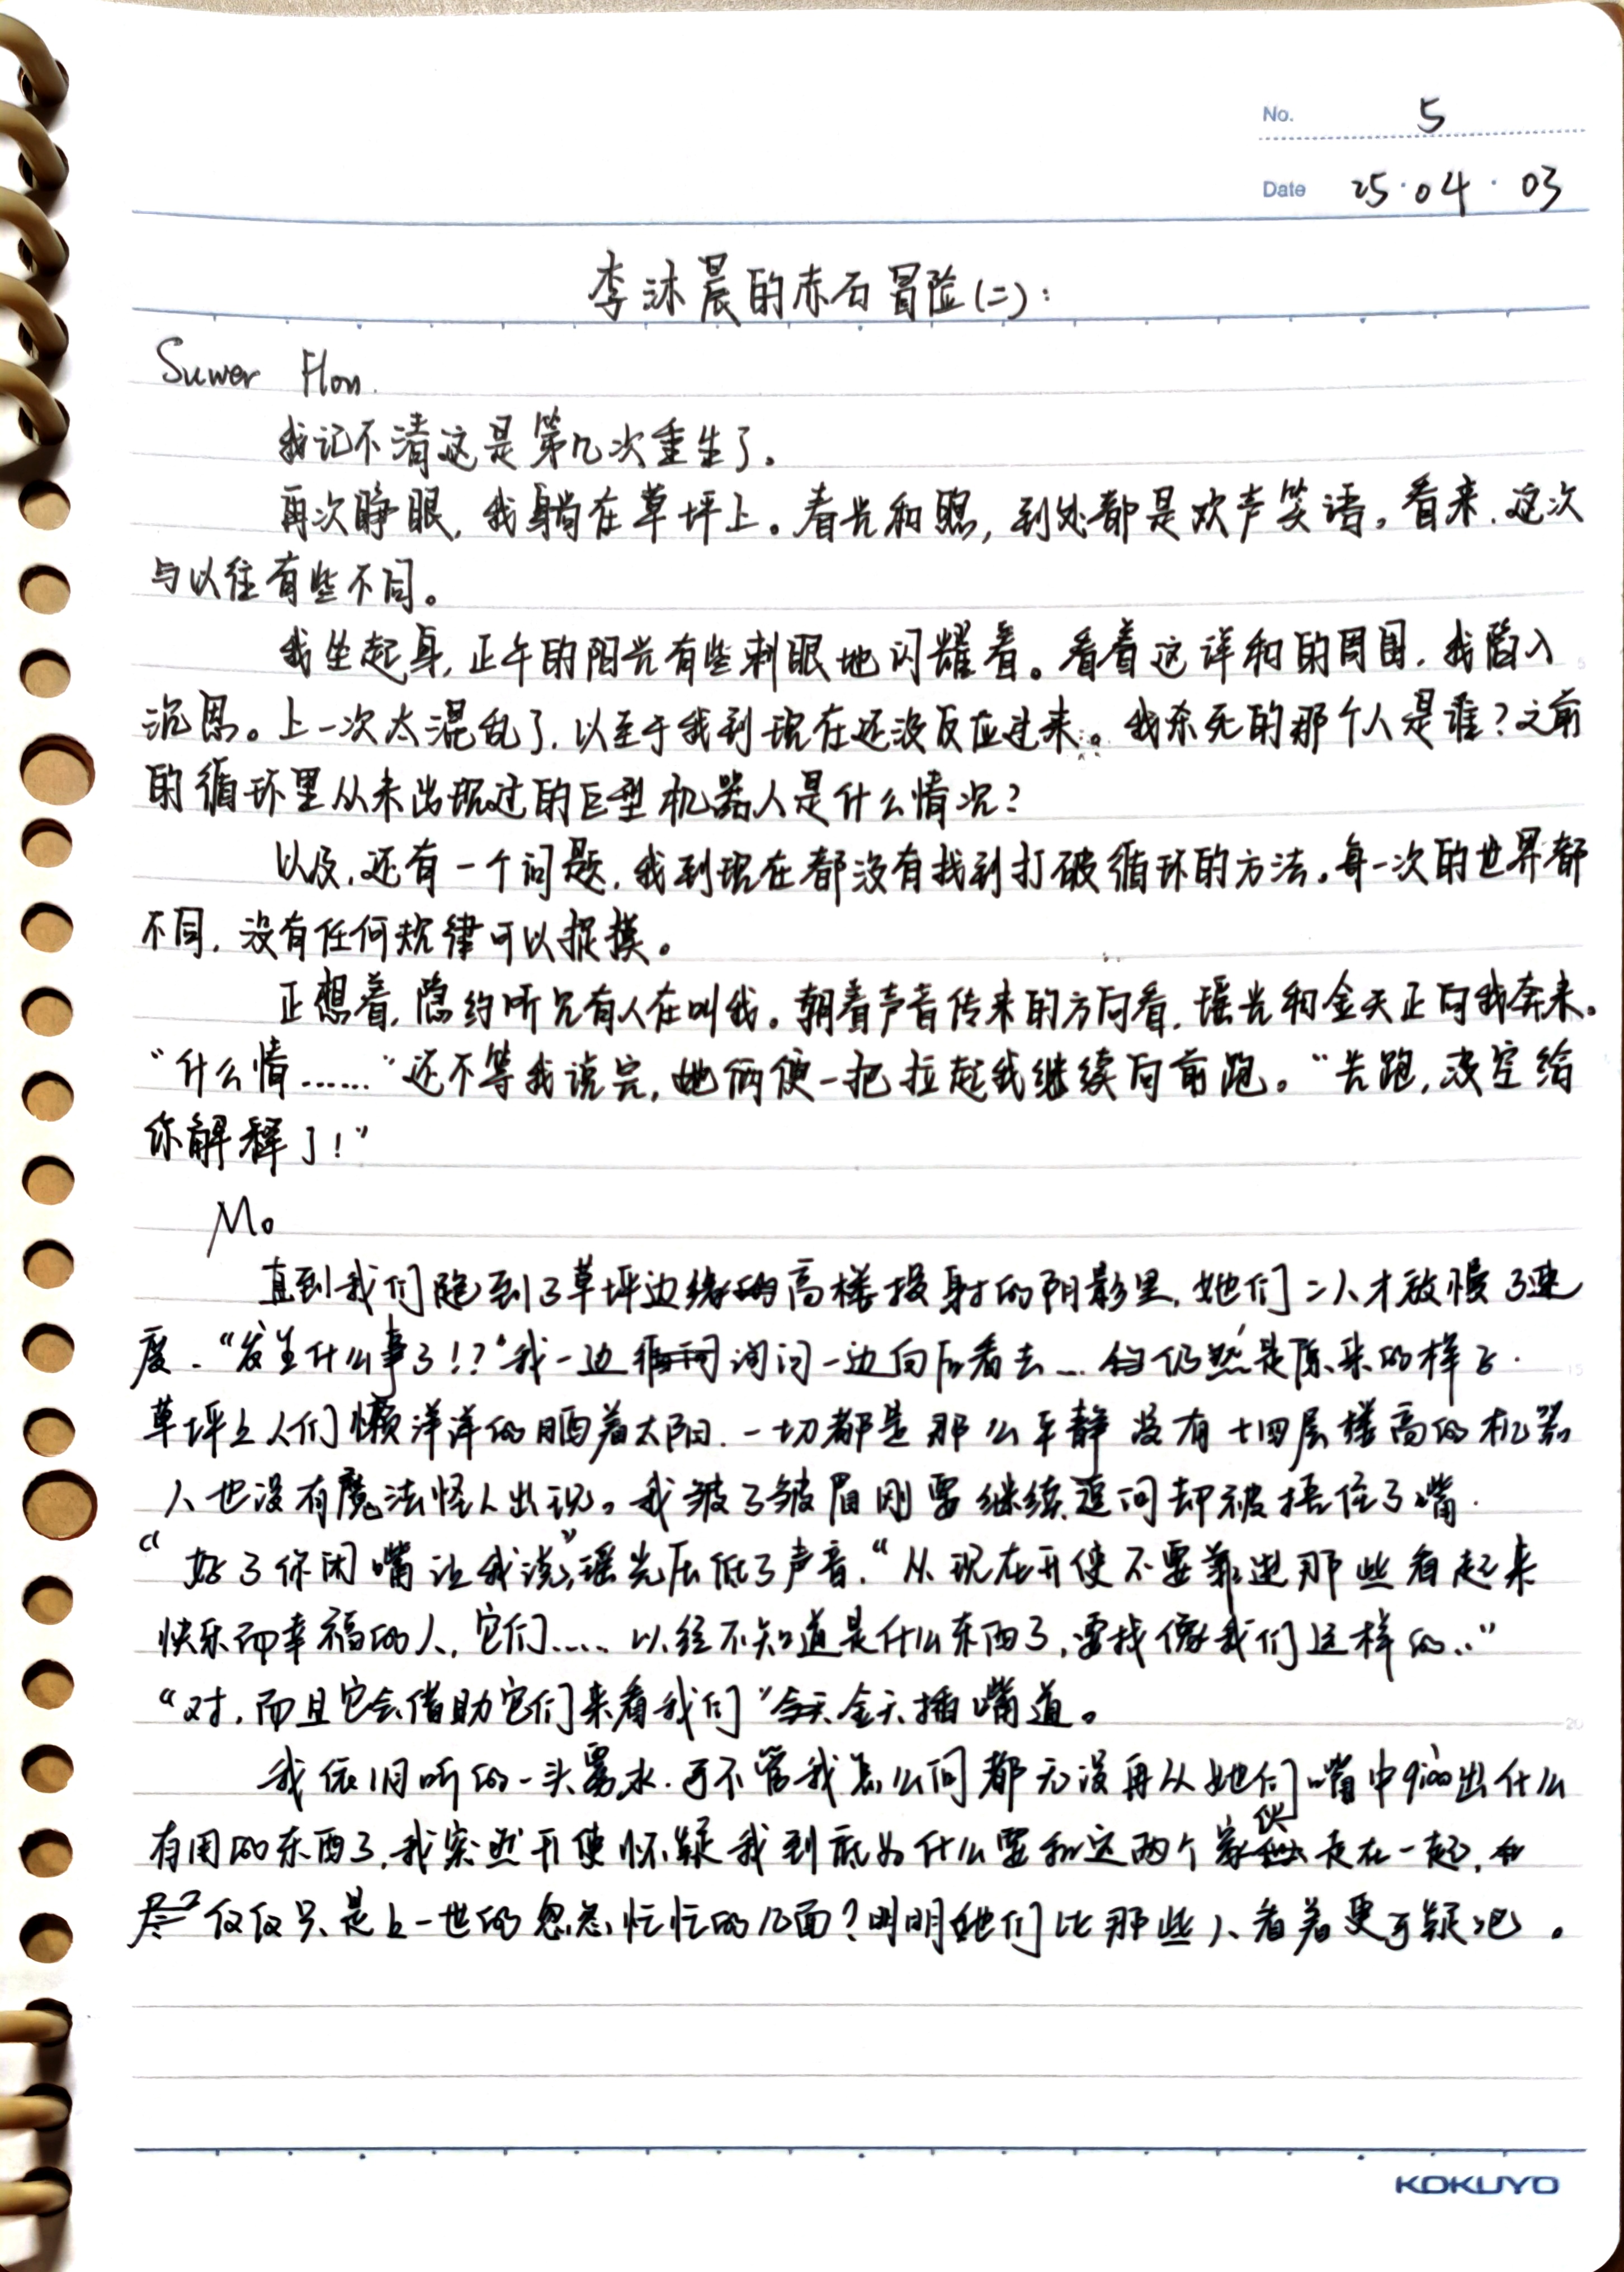 No. 5
Date 25·04·03
李沐晨的赤石冒险(二):
Suwer Hon.
我记不清这是第几次重生了。
再次睁眼,我躺在草坪上。春光和煦,到处都是欢声笑语。看来,这次
与以往有些不同。
我坐起身,正午的阳光有些刺眼地闪耀着。看着这详和的周围,我陷入
沉思。上一次太混乱了,以至于我到现在还没反应过来。我杀死的那个人是谁?之前
的循环里从未出现过的巨型机器人是什么情况?
以及,还有一个问题,我到现在都没有找到打破循环的方法。每一次的世界都
不同,没有任何规律可以捉摸。
正想着,隐约听见有人在叫我。朝着声音传来的方向看,瑶光和金天正向我奔来。
“什么情……”还不等我说完,她俩便一把拉起我继续向前跑。“先跑,没空给
你解释了!”
Mo
直到我们跑到了草坪边缘的高楼投射的阴影里,她们二人才放慢了速
度.“发生什么事了!?”我一边询问一边向后看去...仍然是原来的样子.
草坪上人们懒洋洋的晒着太阳.一切都是那么平静 没有十四层楼高的机器
人也没有魔法怪人出现。我皱了皱眉刚要继续追问却被捂住了嘴.
“好了你闭嘴让我说”,瑶光压低了声音.“从现在开使不要靠进那些看起来
快乐而幸福的人,它们..... 以经不知道是什么东西了,要找像我们这样的..”
“对,而且它会借助它们来看我们”金天插嘴道。
我依旧听的一头雾水.可不管我怎么问都没再从她们嘴中问出什么
有用的东西了,我突然开使怀疑我到底为什么要和这两个家伙走在一起,
仅仅只是上一世的忽忽忙忙的几面?明明她们比那些人看着更可疑吧。
KOKUYO